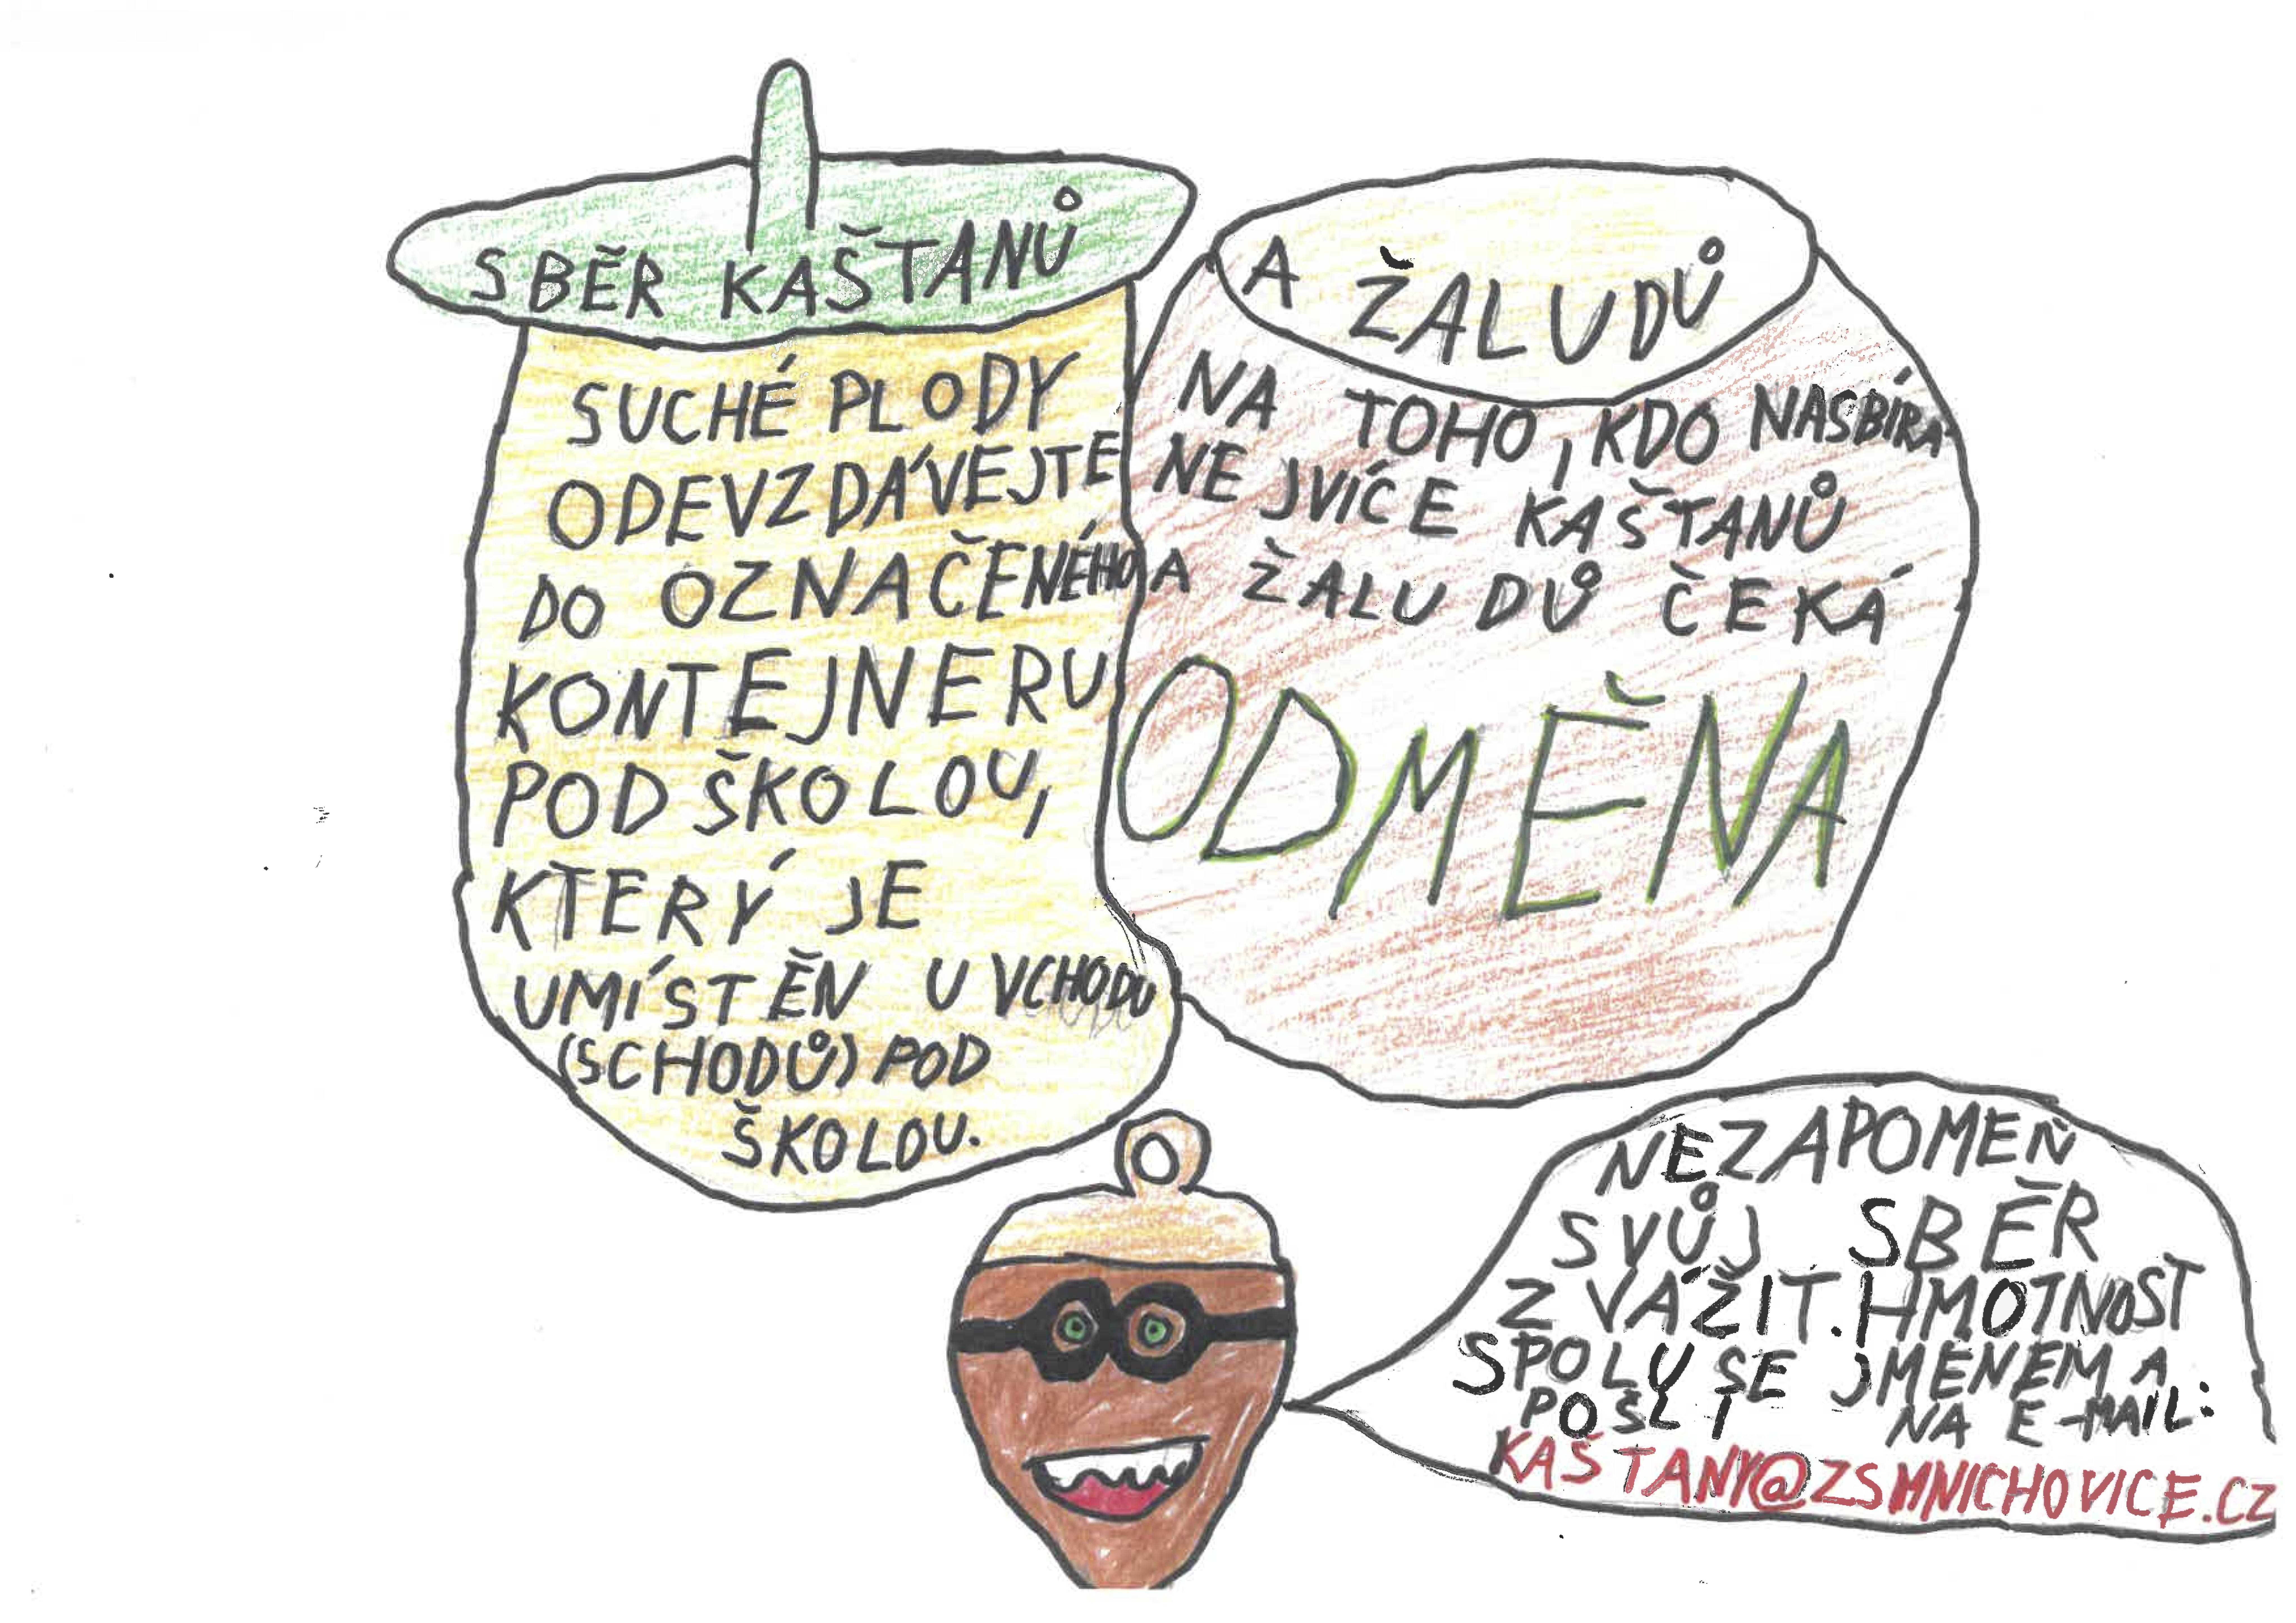 SBĚR KAŠTANŮ
SUCHÉ PLODY
ODEVZDÁVEJTE
DO OZNAČENÉHO
KONTEJNERU
POD ŠKOLOU,
KTERÝ JE
UMÍSTĚN U VCHODU
(SCHODŮ) POD
ŠKOLOU.
A ŽALUDŮ
NA TOHO, KDO NASBÍRÁ
NEJVÍCE KAŠTANŮ
A ŽALUDŮ ČEKÁ
ODMĚNA
NEZAPOMEŇ
SVŮJ SBĚR
ZVÁŽIT. HMOTNOST
SPOLU SE JMÉNEM A
POŠLI NA E-MAIL:
KAŠTANY@ZSMNICHOVICE.CZ